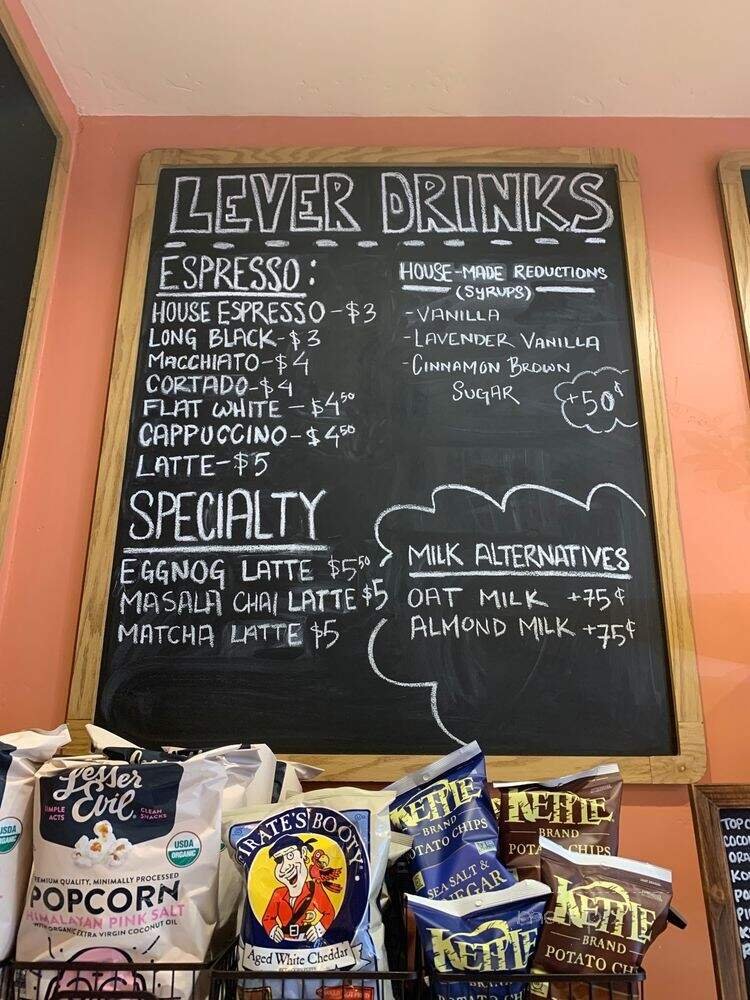 LEVER DRINKS
ESPRESSO:
HOUSE ESPRESSO - $3
LONG BLACK - $3
MACCHIATO - $4
CORTADO - $4
FLAT WHITE - $4.50
CAPPUCCINO - $4.50
LATTE - $5
HOUSE-MADE REDUCTIONS
(SYRUPS)
- VANILLA
- LAVENDER VANILLA
- CINNAMON BROWN
SUGAR
+50¢
SPECIALTY
EGGNOG LATTE $5.50
MASALA CHAI LATTE $5
MATCHA LATTE $5
MILK ALTERNATIVES
OAT MILK +75¢
ALMOND MILK +75¢
Lesser
Evil
CLEAN
SNACKS
ACTS
USDA
ORGANIC
USDA
PREMIUM QUALITY, MINIMALLY PROCESSED
POPCORN
HIMALAYAN PINK SALT
WITH ORGANIC EXTRA VIRGIN COCONUT OIL
PIRATE'S BOOTY
Aged White Cheddar
KETTLE
BRAND
POTATO CHIPS
SEA SALT &
VINEGAR
KETTLE
BRAND
KETTLE
BRAND
KETTLE
BRAND
POTATO